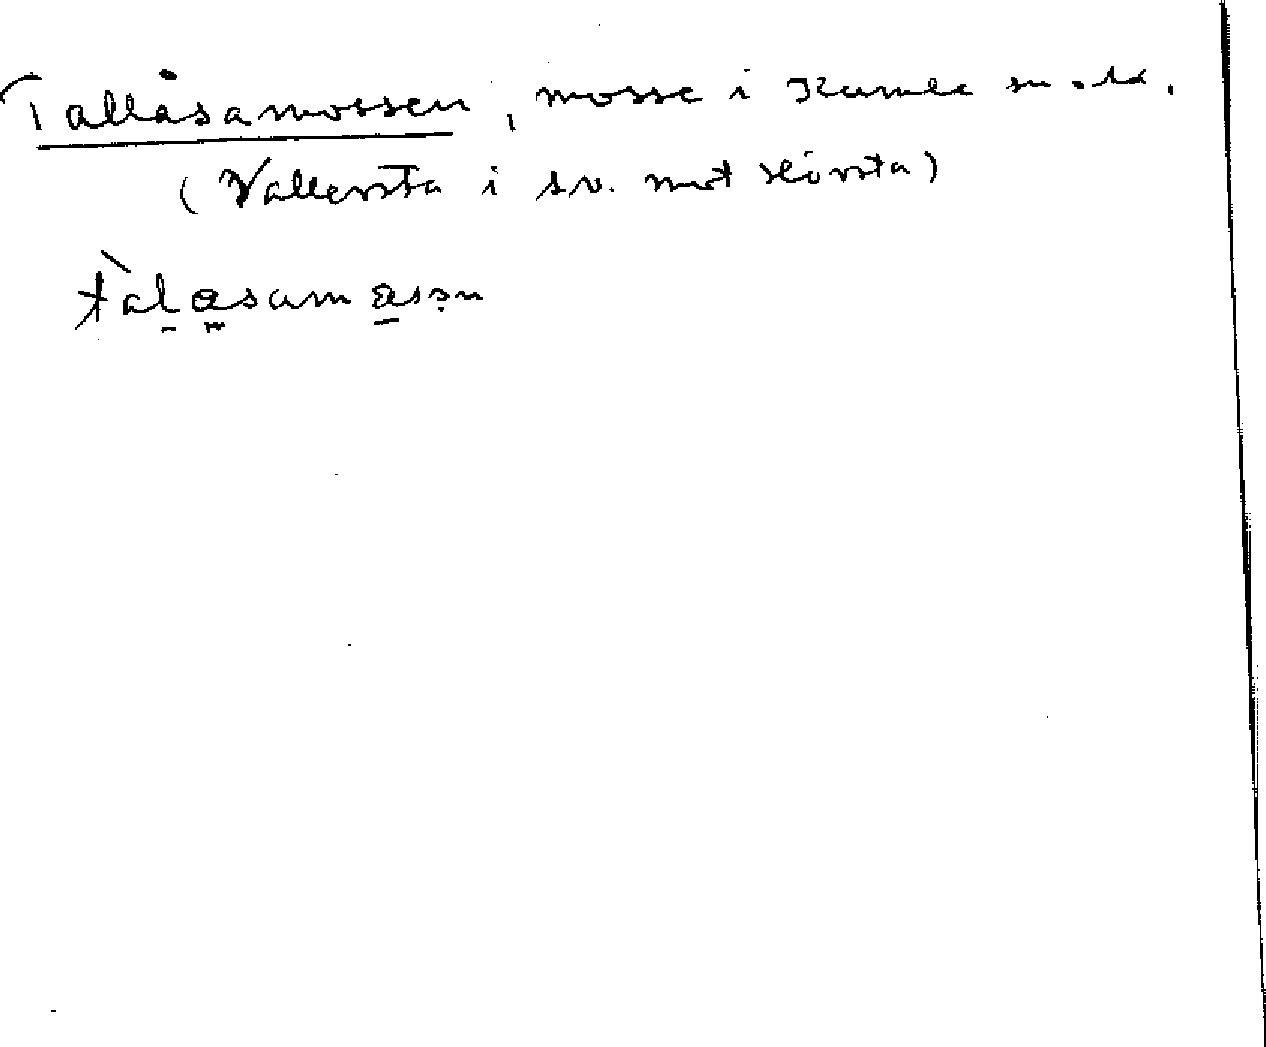 Tallåsamossen, mosse i Kumla sn o. hd.
(Vallersta i sv. mot Hörsta)
tàlåsamåsən